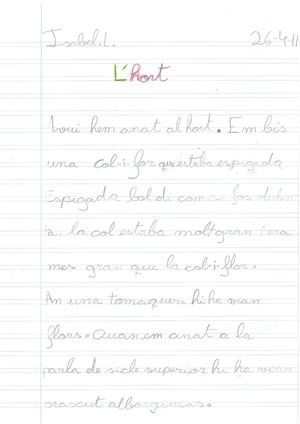 Isabel.L. 26-4-11
L'hort
hui hem anat al hort. Em bis
una col-i-flor que estaba espigada
Espigada bol di com si fos
la col estaba molt gran i era
mes gran que la col-i-flor.
An una tomaquera hi ha
flors. Quan em anat a la
parla de sicle superior hi ha
nascut albarginias.